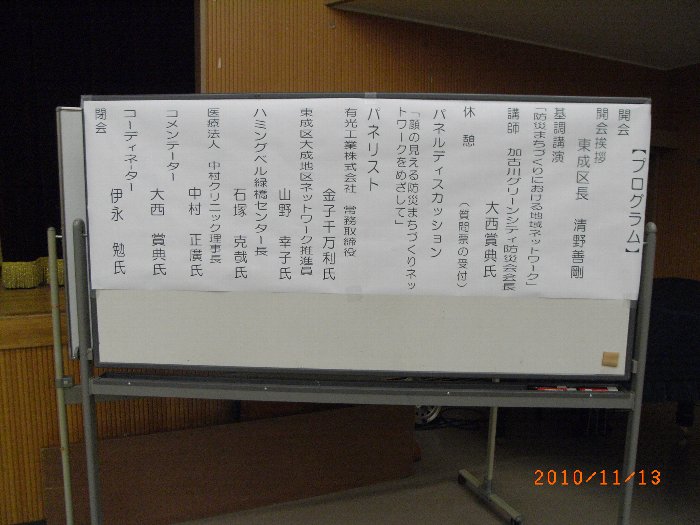 【プログラム】
開会
開会挨拶
東成区長　清野善剛
基調講演
「防災まちづくりにおける地域ネットワーク」
講師　加古川グリーンシティ防災会会長
大西賞典氏
休　憩　（質問票の受付）
パネルディスカッション
「顔の見える防災まちづくりネッ
トワークをめざして」
パネリスト
有光工業株式会社　常務取締役
金子千万利氏
東成区大成地区ネットワーク推進員
山野　幸子氏
ハミングベル緑橋センター長
石塚　克哉氏
医療法人　中村クリニック理事長
中村　正廣氏
コメンテーター
大西　賞典氏
コーディネーター
伊永　勉氏
閉会
2010/11/13